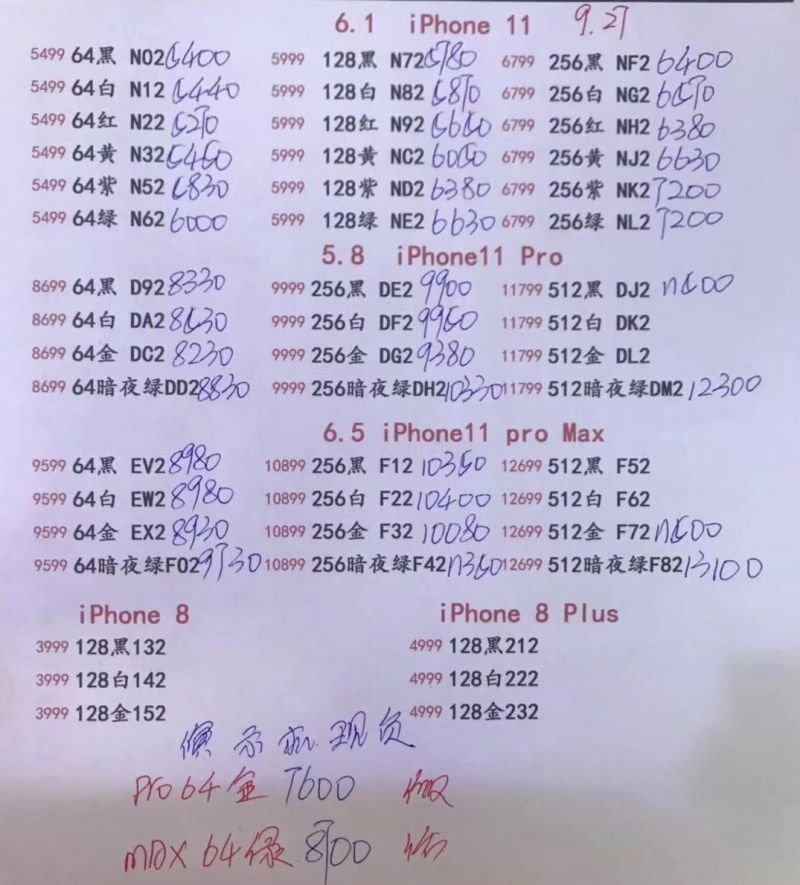 6.1 iPhone 11 9.27
5499 64黑 N02 5400 5999 128黑 N72 5780 6799 256黑 NF2 6400
5499 64白 N12 5440 5999 128白 N82 5870 6799 256白 NG2 6570
5499 64红 N22 5270 5999 128红 N92 5650 6799 256红 NH2 6380
5499 64黄 N32 5450 5999 128黄 NC2 6050 6799 256黄 NJ2 6630
5499 64紫 N52 5830 5999 128紫 ND2 6380 6799 256紫 NK2 7200
5499 64绿 N62 6000 5999 128绿 NE2 6630 6799 256绿 NL2 7200
5.8 iPhone11 Pro
8699 64黑 D92 8330 9999 256黑 DE2 9900 11799 512黑 DJ2 11500
8699 64白 DA2 8530 9999 256白 DF2 9950 11799 512白 DK2
8699 64金 DC2 8230 9999 256金 DG2 9380 11799 512金 DL2
8699 64暗夜绿DD2 8830 9999 256暗夜绿DH2 10330 11799 512暗夜绿DM2 12300
6.5 iPhone11 pro Max
9599 64黑 EV2 8980 10899 256黑 F12 10350 12699 512黑 F52
9599 64白 EW2 8980 10899 256白 F22 10400 12699 512白 F62
9599 64金 EX2 8930 10899 256金 F32 10080 12699 512金 F72 11500
9599 64暗夜绿F02 9730 10899 256暗夜绿F42 11350 12699 512暗夜绿F82 13100
iPhone 8 iPhone 8 Plus
3999 128黑132 4999 128黑212
3999 128白142 4999 128白222
3999 128金152 4999 128金232
示机现
Pro 64金 7600
MAX 64绿 8700